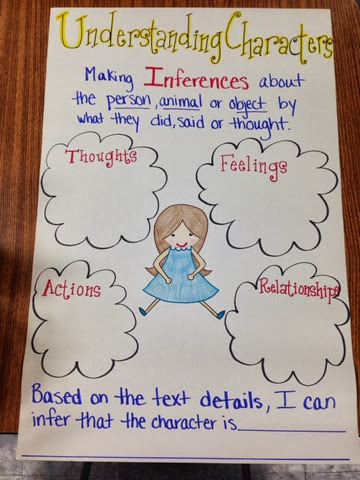 Understanding Characters
Making Inferences about
the person, animal or object by
what they did, said or thought.
Thoughts
Feelings
Actions
Relationships
Based on the text details, I can
infer that the character is